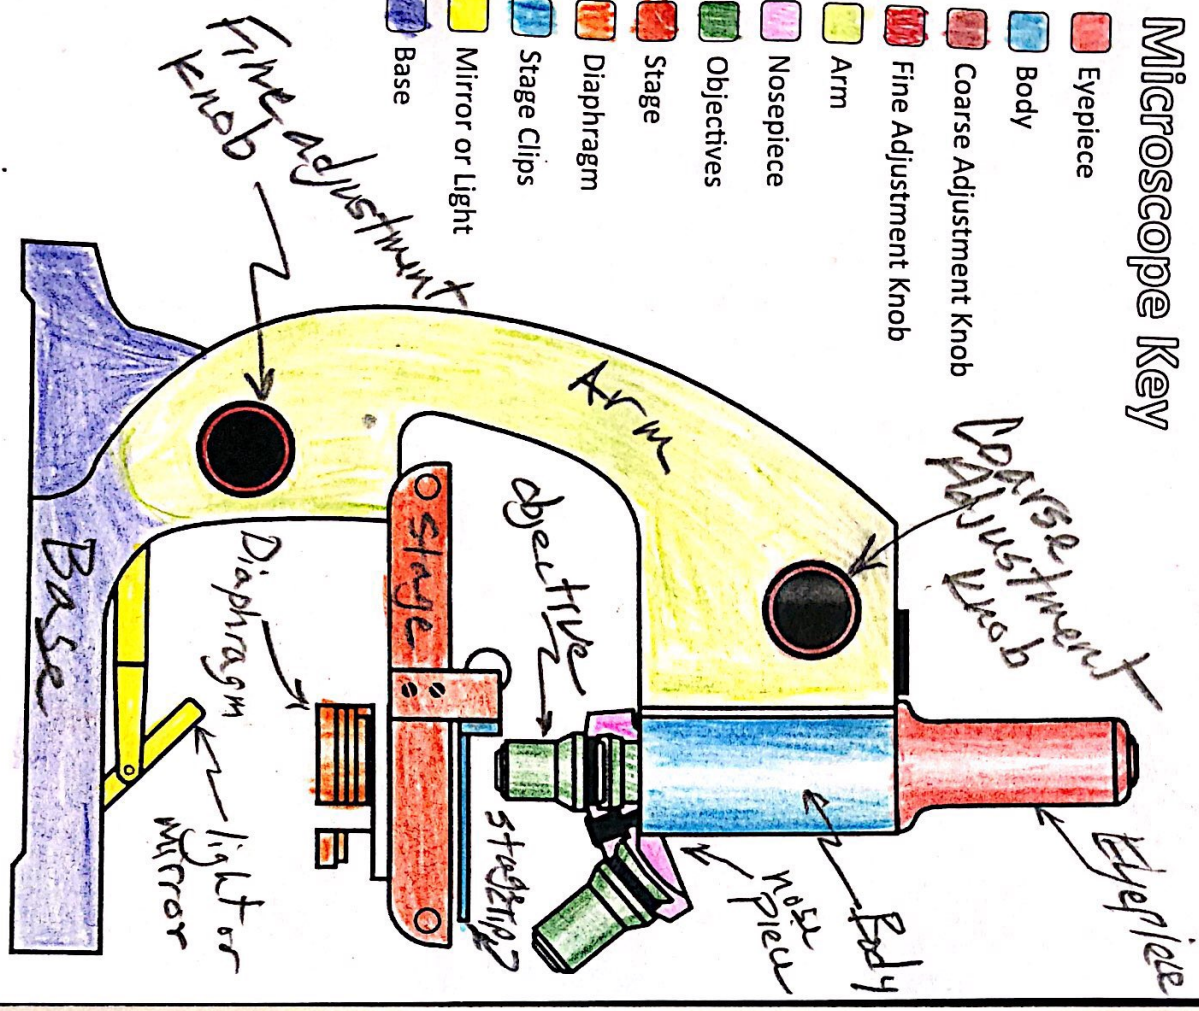 Microscope Key
Eyepiece
Body
Coarse Adjustment Knob
Fine Adjustment Knob
Arm
Nosepiece
Objectives
Stage
Diaphragm
Stage Clips
Mirror or Light
Base
Eyepiece
Coarse
Adjustment
Knob
Body
nose
piece
Arm
objective
Stage
Fine adjustment
Knob
Diaphragm
light or
mirror
Base